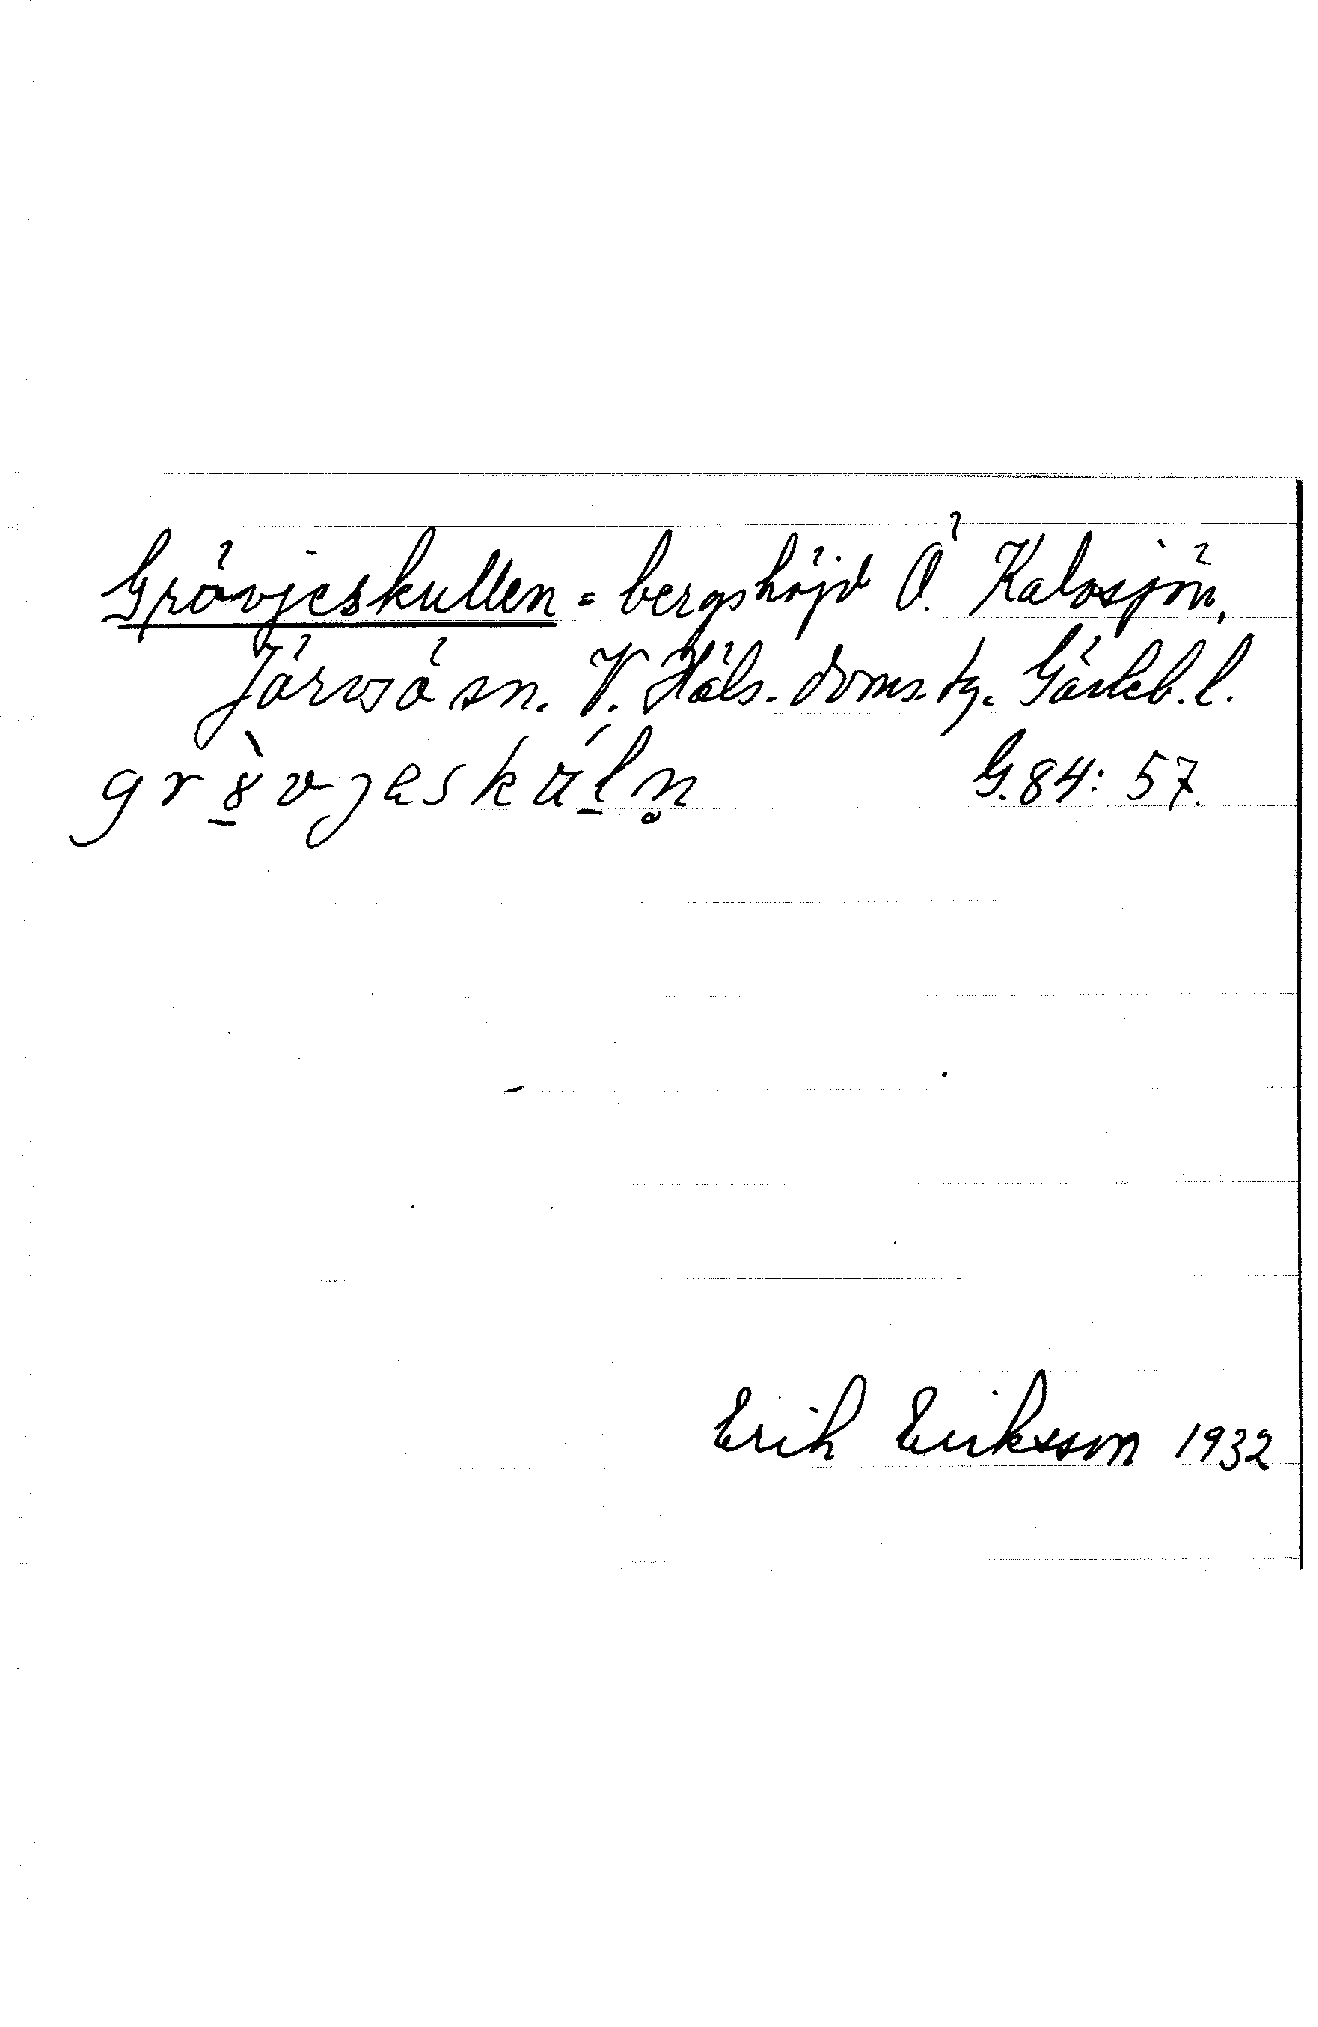 Grövjeskullen = bergshöjd Ö. Kalvsjön,
Järvsö sn. V. Häls. doms tg. Gävleb. l.
G. 84: 57.
Erik Eriksson 1932